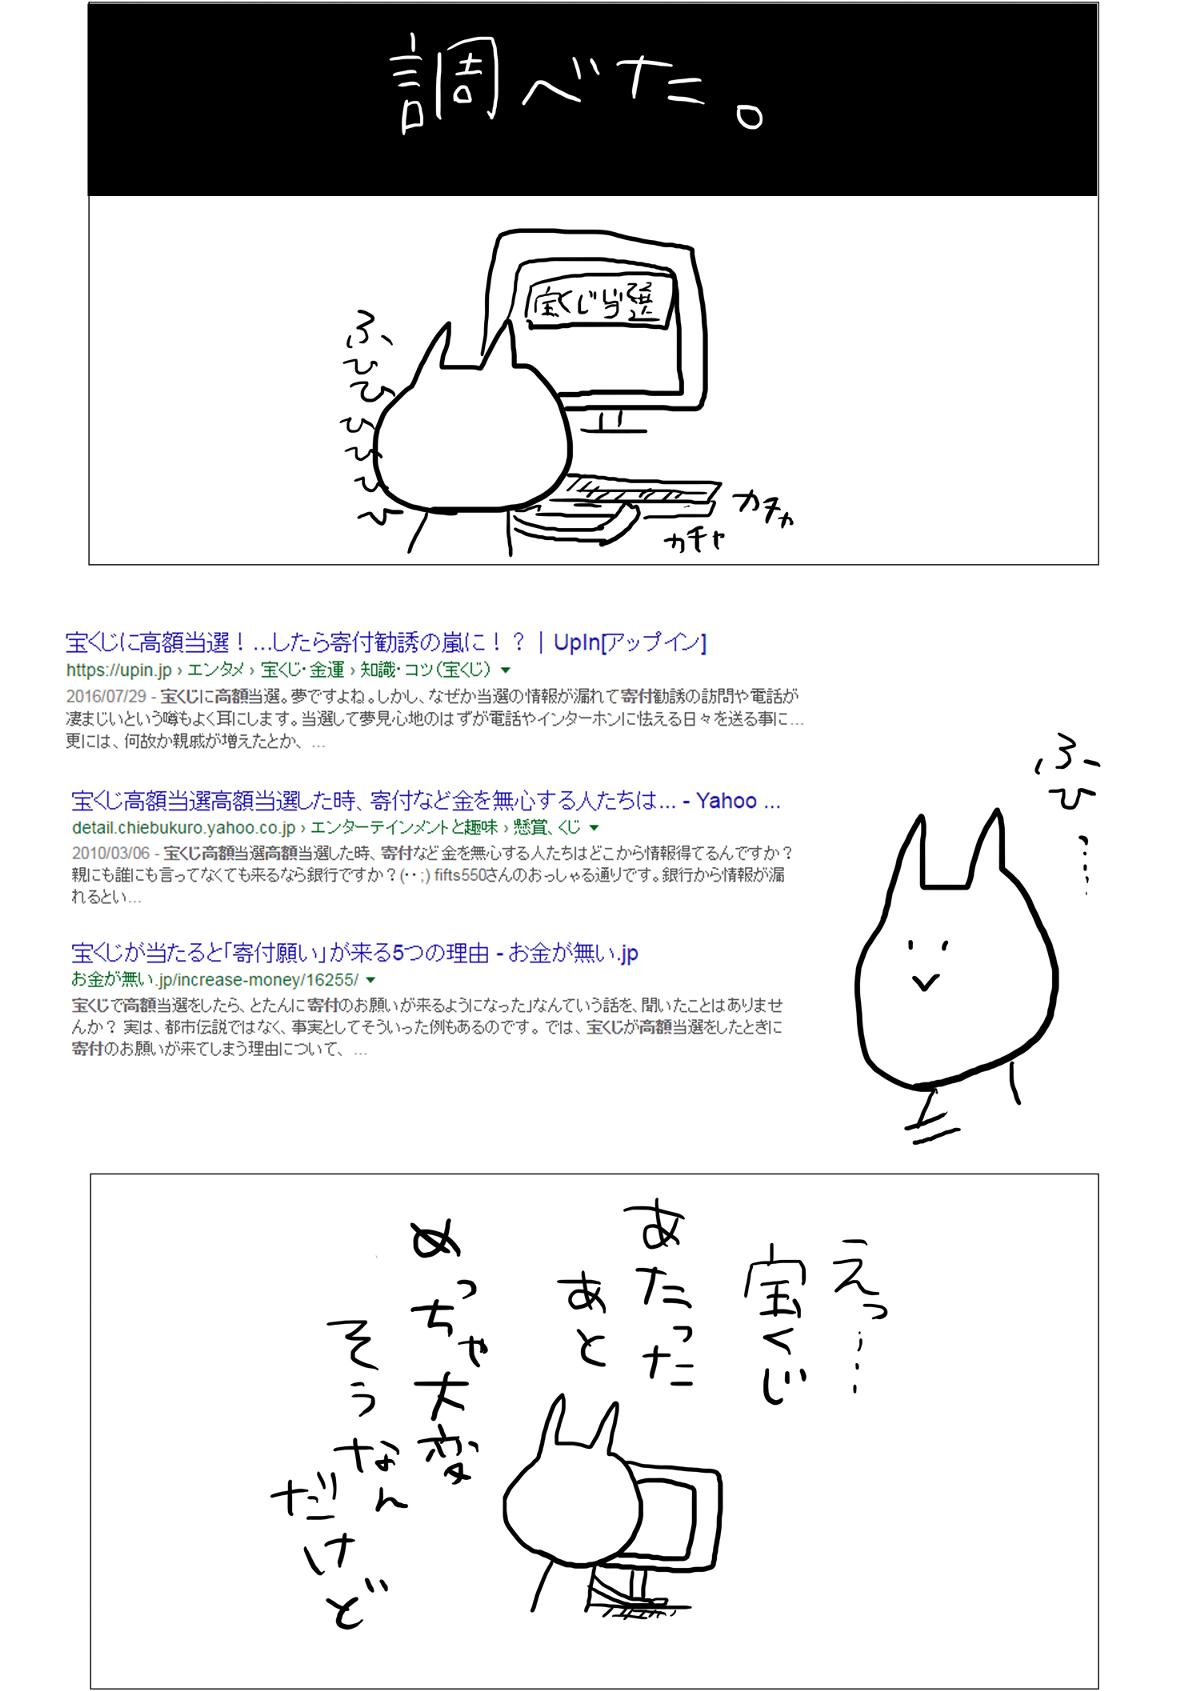 調べた。
宝くじ当選
ふひひひひひひ
カチャ
カチャ
宝くじに高額当選！…したら寄付勧誘の嵐に！？｜UpIn[アップイン]
https://upin.jp › エンタメ › 宝くじ・金運 › 知識・コツ（宝くじ） ▼
2016/07/29 - 宝くじに高額当選。夢ですよね。しかし、なぜか当選の情報が漏れて寄付勧誘の訪問や電話が
凄まじいという噂もよく耳にします。当選して夢見心地のはずが電話やインターホンに怯える日々を送る事に...
更には、何故か親戚が増えたとか、 ...
宝くじ高額当選高額当選した時、寄付など金を無心する人たちは... - Yahoo ...
detail.chiebukuro.yahoo.co.jp › エンターテインメントと趣味 › 懸賞、くじ ▼
2010/03/06 - 宝くじ高額当選高額当選した時、寄付など金を無心する人たちはどこから情報得てるんですか？
親にも誰にも言ってなくても来るなら銀行ですか？(・・;) fifts550さんのおっしゃる通りです。銀行から情報が漏
れるとい...
宝くじが当たると「寄付願い」が来る5つの理由 - お金が無い.jp
お金が無い.jp/increase-money/16255/ ▼
宝くじで高額当選をしたら、とたんに寄付のお願いが来るようになった」なんていう話を、聞いたことはありませ
んか？ 実は、都市伝説ではなく、事実としてそういった例もあるのです。 では、宝くじが高額当選をしたときに
寄付のお願いが来てしまう理由について、 ...
ふひ……
えっ…
宝くじ
あたった
あと
めっちゃ大変
そうなん
だけど